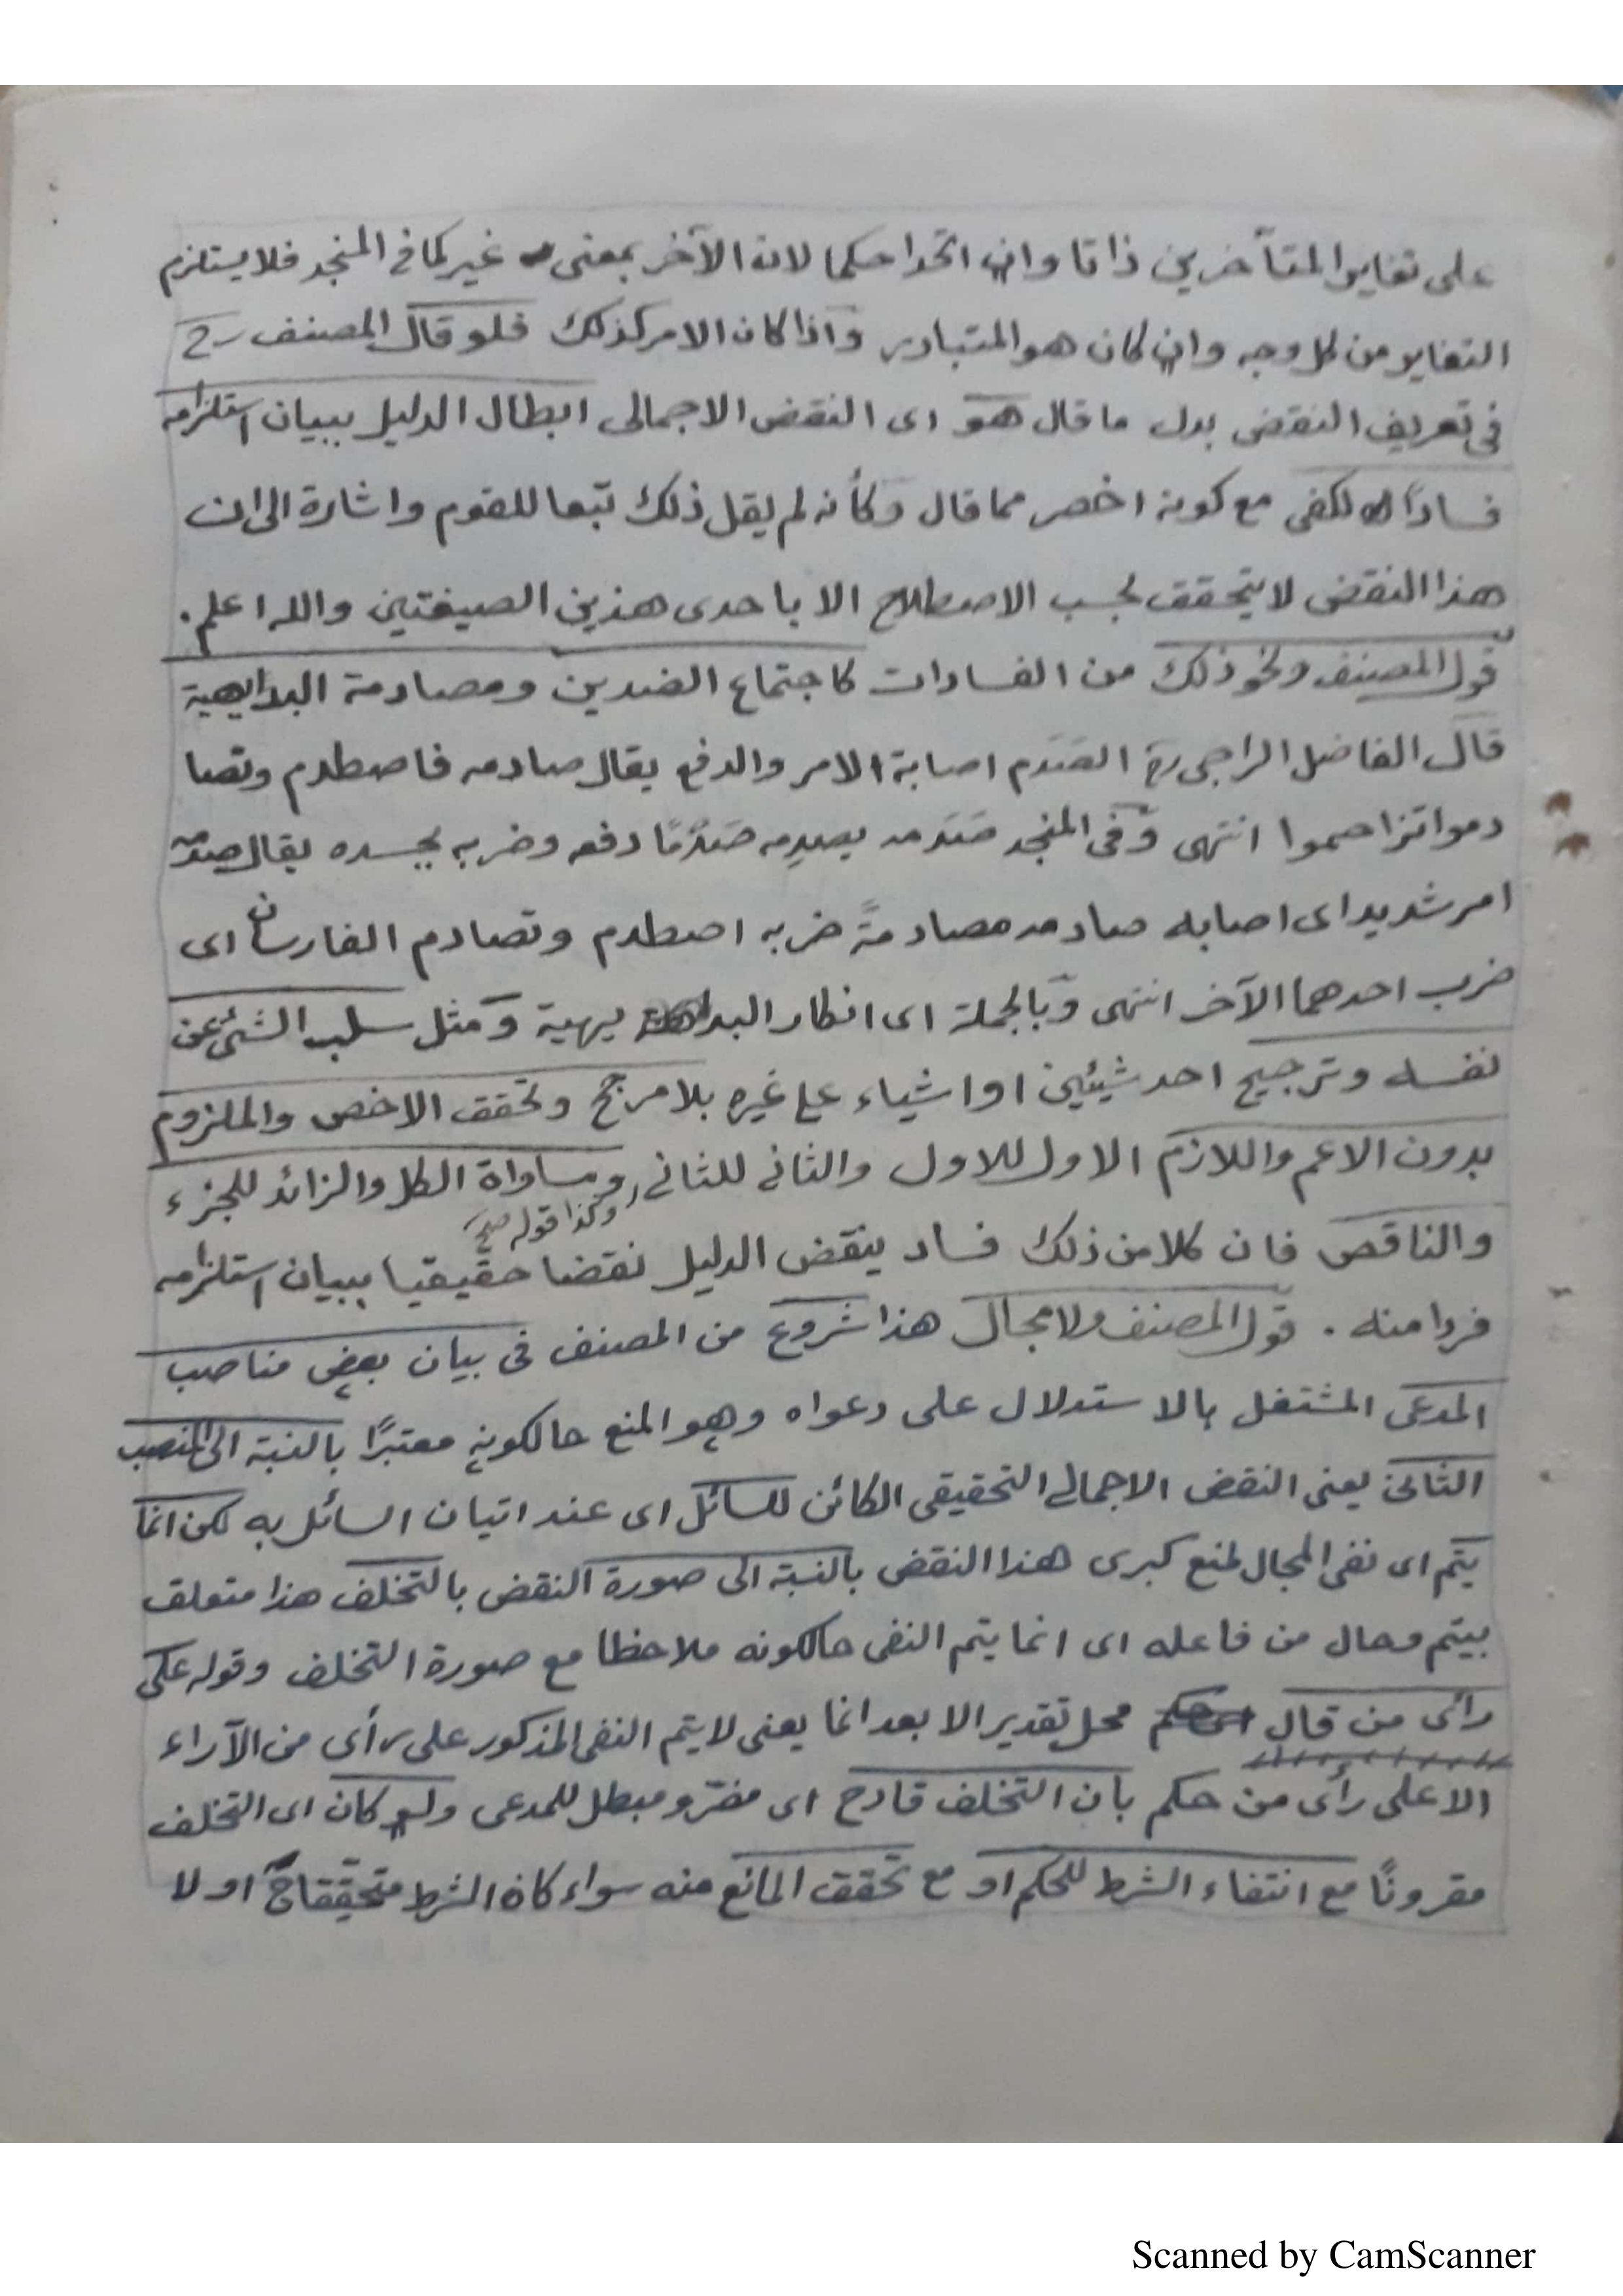 على تغاير المتأخرين ذاتا وان اتحدا حكما لان الآخر بمعنى غير كما في المنجد فلا يستلزم
التغاير من كل وجه وان كان هو المتبادر واذا كان الامر كذلك فلو قال المصنف رح
في تعريف النقض بدل ما قال هو اى النقض الاجمالى ابطال الدليل ببيان استلزامه
فسادًا لكفى مع كونه اخصر مما قال وكأنه لم يقل ذلك تبعا للقوم واشارة الى ان
هذا النقض لا يتحقق بحسب الاصطلاح الا باحدى هذين الصيغتين والله اعلم.
قول المصنف ونحو ذلك من الفسادات كاجتماع الضدين ومصادمة البدايهية
قال الفاضل الراجى ره الصَدم اصابة الامر والدفع يقال صادمه فاصطدم وتصا
دموا تزاحموا انتهى وفى المنجد صَدَمه يصدِمه صَدْمًا دفعه وضربه بجسده يقال صدمه
امر شديد اى اصابه صادمه مصادمةً ضربه اصطدم وتصادم الفارسان اى
ضرب احدهما الآخر انتهى وبالجملة اى انكار البديهية ومثل سلب الشئ عن
نفسه وترجيح احد شيئين او اشياء على غيره بلا مرجح وتحقق الاخص والملزوم
بدون الاعم واللازم الاول للاول والثانى للثانى ومساواة الكل والزائد للجزء
وكذا قوله صح
والناقص فان كلا من ذلك فساد ينقض الدليل نقضا حقيقيا ببيان استلزامه
فردا منه. قول المصنف ولا مجال هذا شروع من المصنف فى بيان بعض مناصب
المدعى المشتغل بالاستدلال على دعواه وهو المنع حالكونه معتبرًا بالنسبة الى المنصب
الثانى يعنى النقض الاجمالى التحقيقى الكائن للسائل اى عند اتيان السائل به لكن انما
يتم اى نفى المجال لمنع كبرى هذا النقض بالنسبة الى صورة النقض بالتخلف هذا متعلق
بيتم وحال من فاعله اى انما يتم النفى حالكونه ملاحظا مع صورة التخلف وقوله على
رائى من قال محل تقدير الا بعد انما يعنى لا يتم النفى المذكور على رأى من الآراء
الا على رأى من حكم بان التخلف قادح اى مضر ومبطل للمدعى ولو كان اى التخلف
مقرونًا مع انتفاء الشرط للحكم او مع تحقق المانع منه سواء كان الشرط متحققا او لا
Scanned by CamScanner